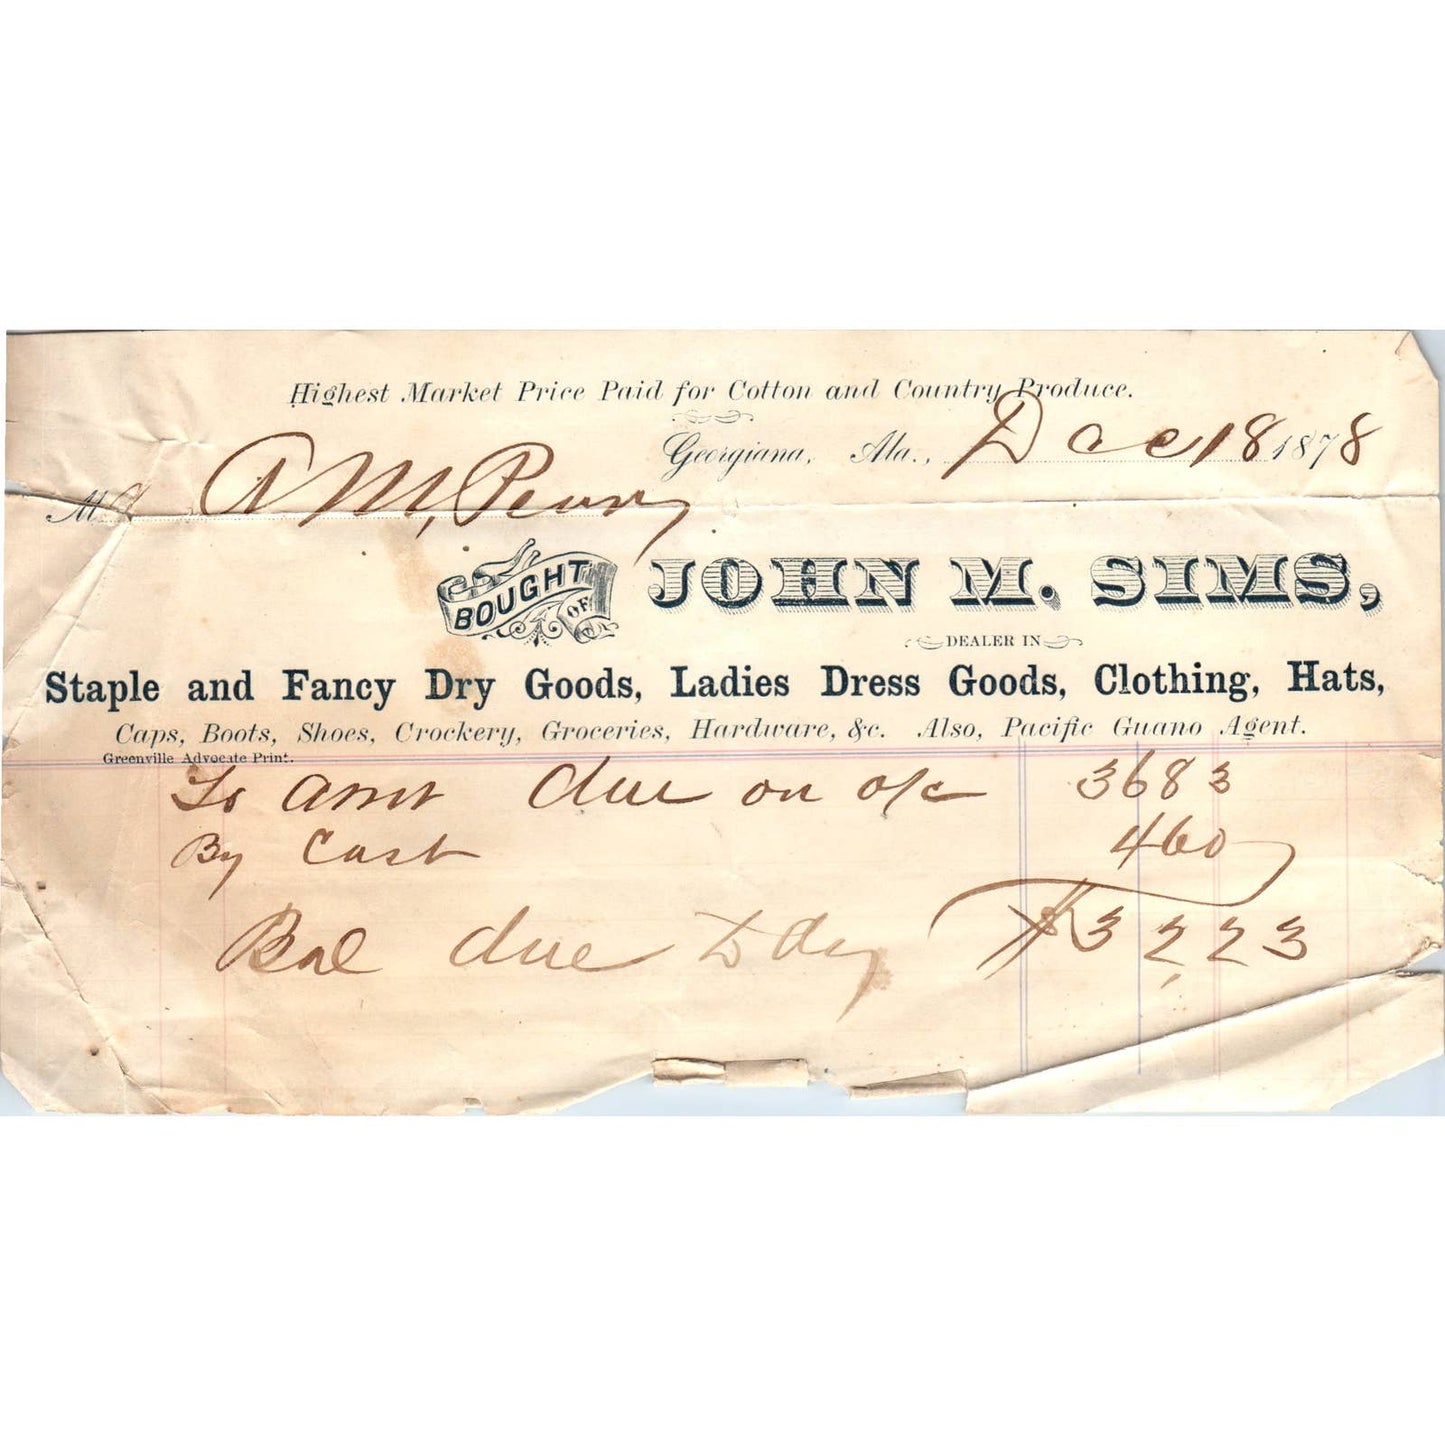 Highest Market Price Paid for Cotton and Country Produce.
Georgiana, Ala., Dec 18 1878
M A M, Perry
BOUGHT OF JOHN M. SIMS,
DEALER IN
Staple and Fancy Dry Goods, Ladies Dress Goods, Clothing, Hats,
Caps, Boots, Shoes, Crockery, Groceries, Hardware, &c. Also, Pacific Guano Agent.
Greenville Advocate Print.
To Amt due on a/c 3683
By Cash 460
Bal due to day $3223